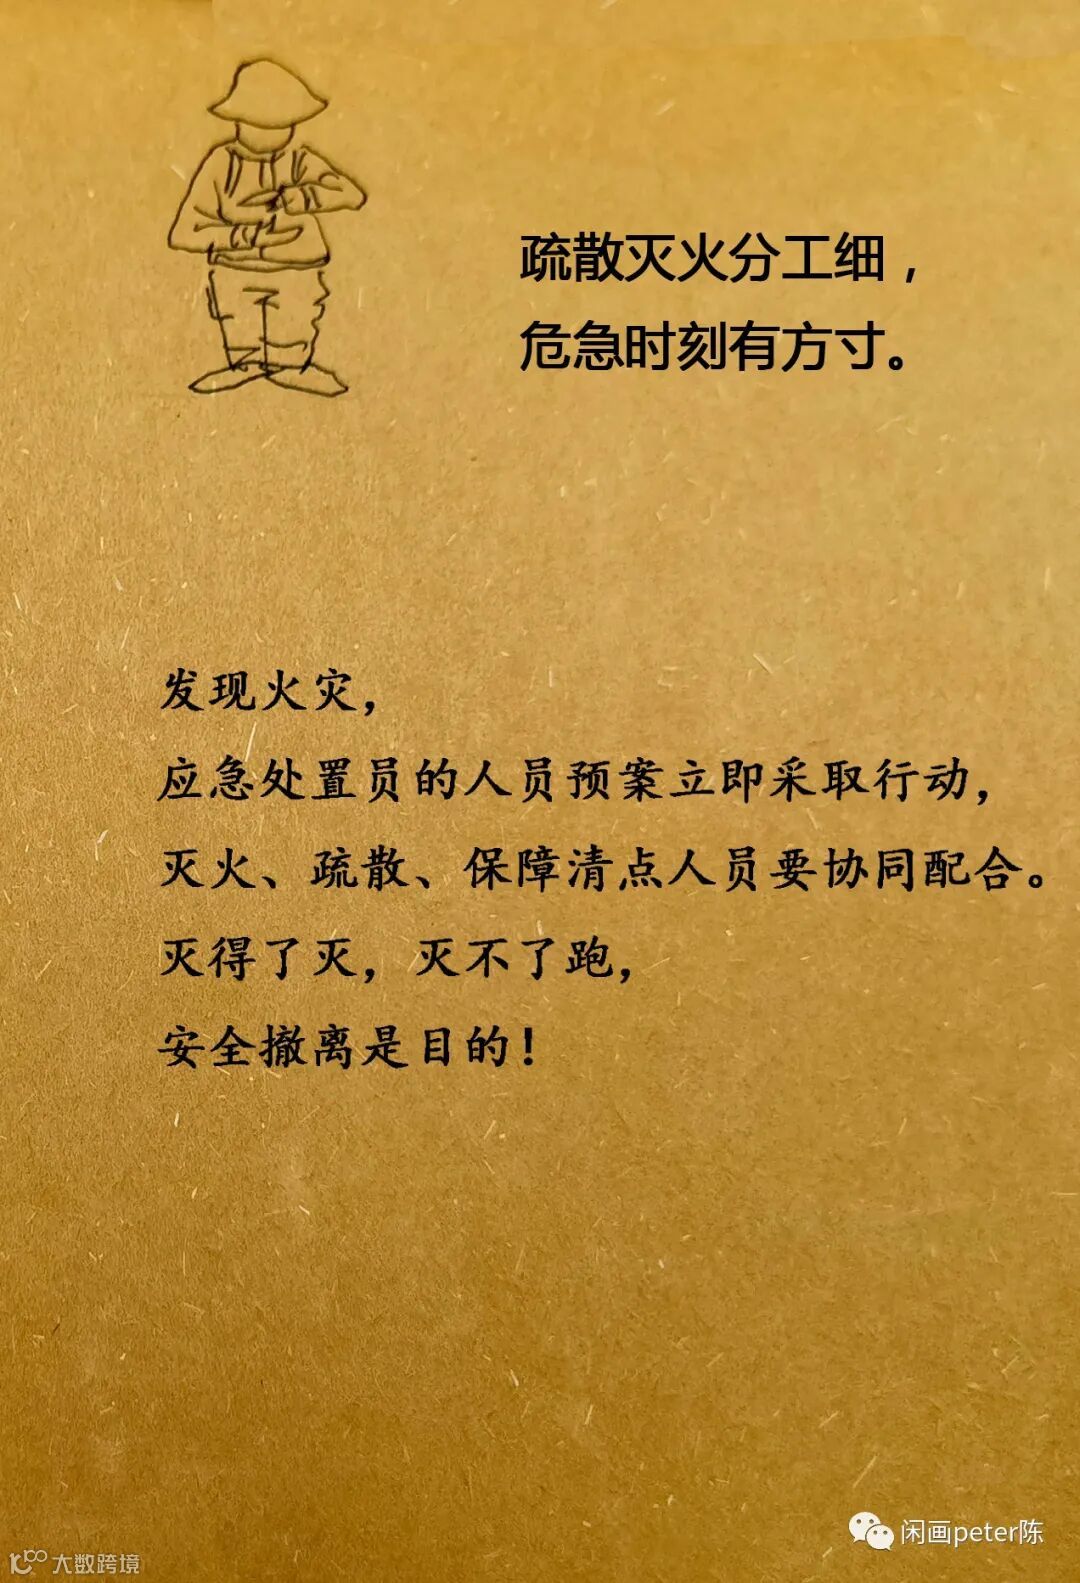 疏散灭火分工细，
危急时刻有方寸。
发现火灾，
应急处置员的人员预案立即采取行动，
灭火、疏散、保障清点人员要协同配合。
灭得了灭，灭不了跑，
安全撤离是目的！
闲画peter陈
大数跨境